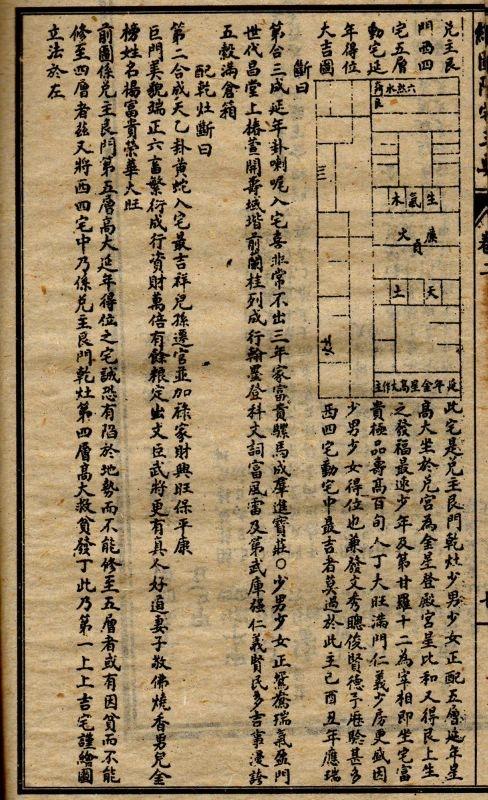 兌主艮
門西四
宅五層
動宅延
年得位
大吉圖
六煞水
艮
生氣木
廉貞火
天土
延年金星高大作主
此宅是兌主艮門乾灶少男少女正配五層延年星
高大坐於兌宮為金星登殿宮星比和又得艮土生
之發福最速少年及第甘羅十二為宰相即坐宅富
貴極品壽高百旬人丁大旺滿門仁義少房更盛因
少男少女得位也兼發文秀聰俊賢德子麻聆甚多
西四宅動宅中最吉者莫過於此主巳酉丑年應瑞
斷曰
第台三成延年卦喇呢入宅喜非常不出三年家富貴騾馬成羣進寶莊○少男少女正鴛鴦瑞氣盈門
世代昌堂上椿萱開壽域堦前蘭桂列成行翰墨登科文詞富風雷及第武庫强仁義賢民多吉事漫誇
五穀滿倉箱
配乾灶斷曰
第二合成天乙卦黃蛇入宅最吉祥兒孫遷官並加祿家財興旺保平康
巨門美貌端正六畜繁衍成行資財萬倍有餘糧定出文臣武將更有真人好道妻子敬佛燒香男兒金
榜姓名揚富貴榮華大旺
前圖係兌主艮門第五層高大延年得位之宅誠恐有陷於地勢而不能修至五層者或有因貧而不能
修至四層者茲又將西四宅中乃係兌主艮門乾灶第四層高大救貧發丁此乃第一上上吉宅謹繪圖
立法於左
卷二